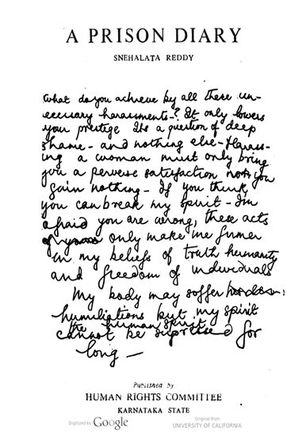 A PRISON DIARY
SNEHALATA REDDY
What do you achieve by all these un-
necessary harassments-? It only lowers
your prestige Its a question of deep
shame- and nothing else- Harass-
ing a woman must only bring
you a perverse satisfaction
gain nothing- If you think
you can break my spirit- Im
afraid you are wrong, these acts
only make me firmer
in my beliefs of truth humanity
and freedom of individuals
My body may suffer
humiliations but my spirit
the human spirit
cannot be supressed for
long-
Published by
HUMAN RIGHTS COMMITTEE
KARNATAKA STATE
Digitized by Google
Original from
UNIVERSITY OF CALIFORNIA